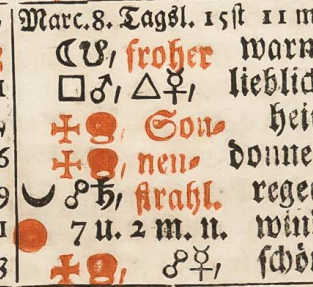 Marc. 8. Tagsl. 15st 11 m
☾☋, froher warm
□♂, △☿, lieblic
Son⸗ hei
nen⸗ donne
☍♄, strahl. rege
7 u. 2 m. n. win
☍☿, schön